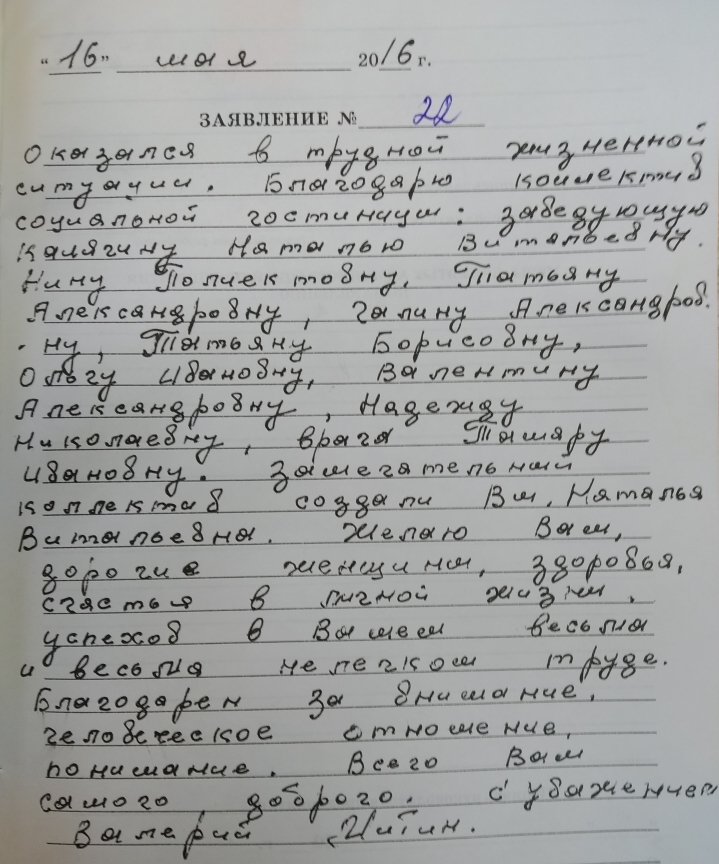 "16" мая 2016 г.
ЗАЯВЛЕНИЕ № 22
Оказался в трудной жизненной
ситуации. Благодарю коллектив
социальной гостиницы: заведующую
Калягину Наталью Витальевну.
Нину Полиектовну, Татьяну
Александровну, Галину Александров.
ну, Татьяну Борисовну,
Ольгу Ивановну, Валентину
Александровну, Надежду
Николаевну, врача Тамару
Ивановну. Замечательный
коллектив создали Вы, Наталья
Витальевна. Желаю Вам,
дорогие женщины, здоровья,
счастья в личной жизни,
успехов в Вашем весьма
и весьма нелегком труде.
Благодарен за внимание,
человеческое отношение,
понимание. Всего Вам
самого доброго. С уважением
Валерий